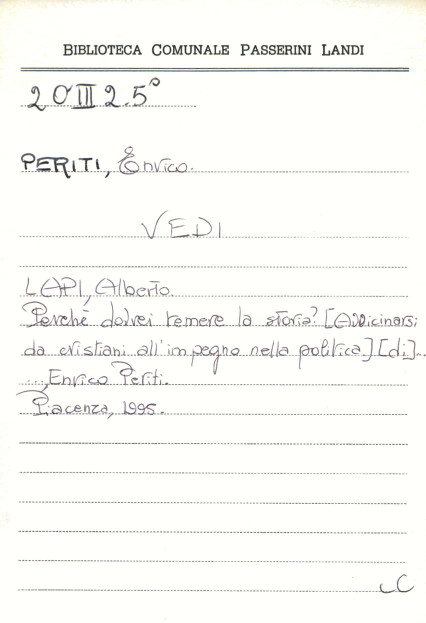 BIBLIOTECA COMUNALE PASSERINI LANDI
2 O III 2.5°
PERITI, Enrico.
VEDI
LAPI, Alberto.
Perché dovrei temere la storia? [Avvicinarsi
da cristiani all'impegno nella politica.] [di]..
..., Enrico Periti.
Piacenza, 1995.